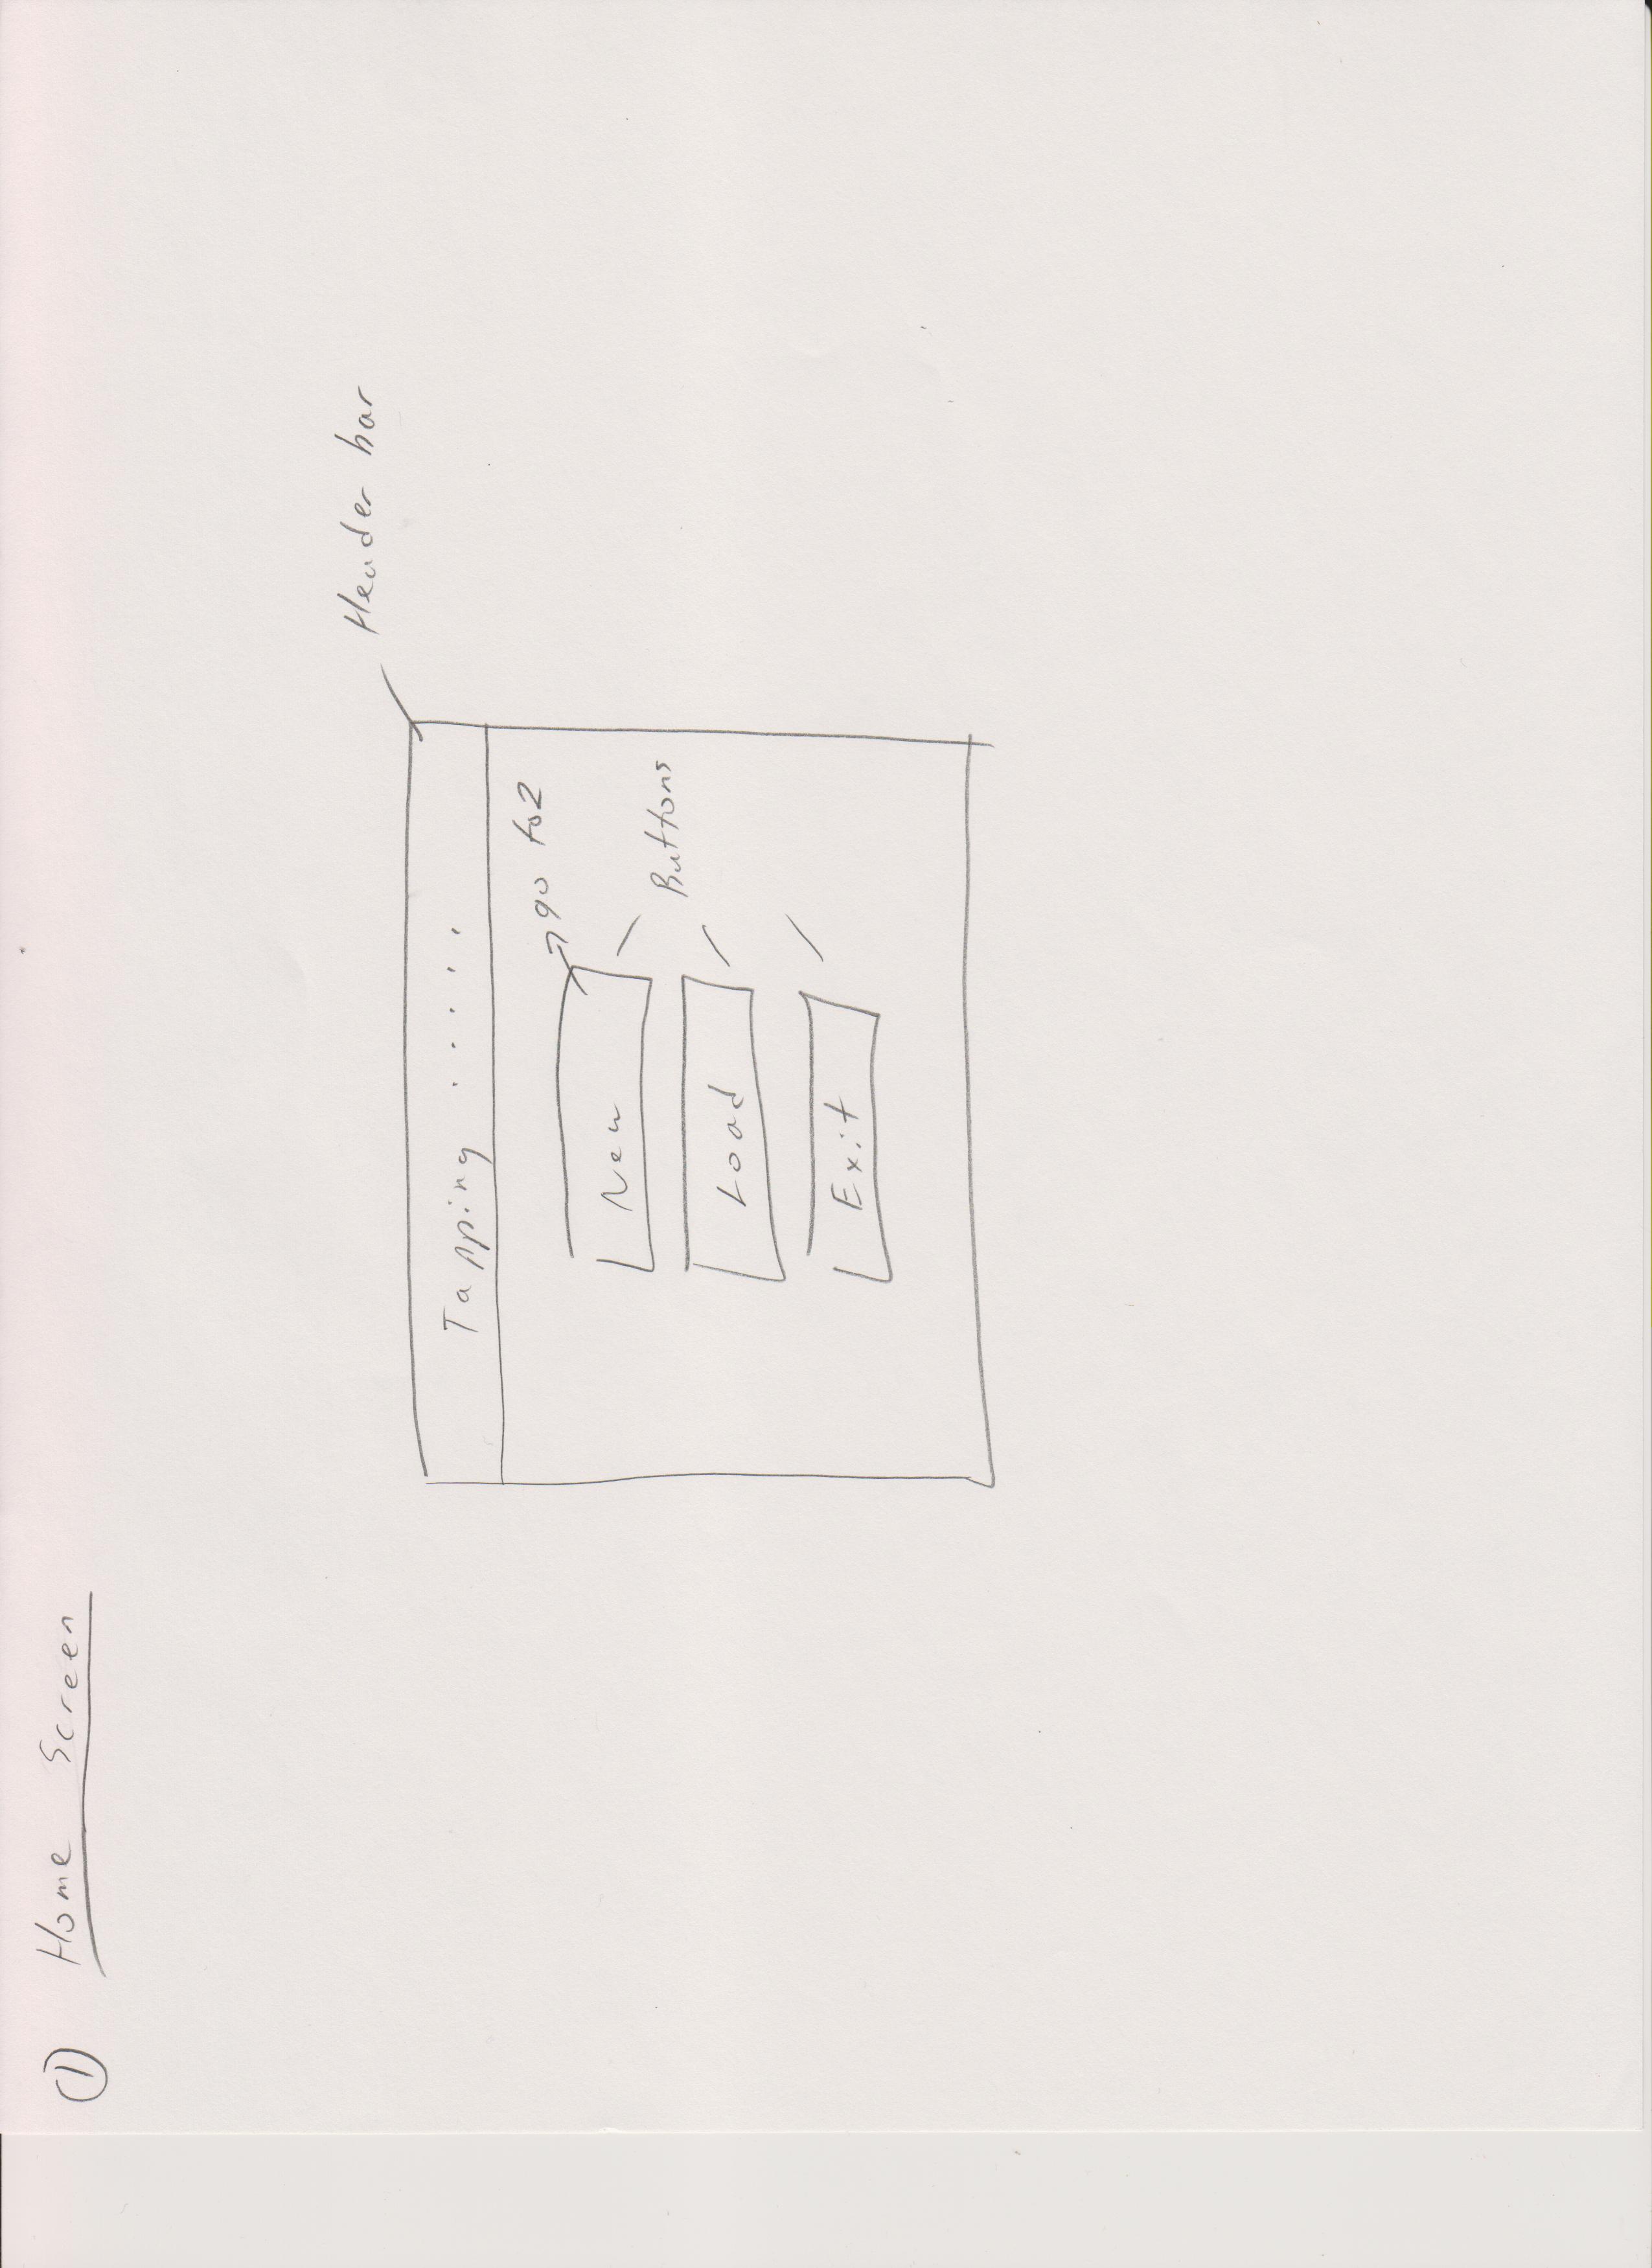 ① Home Screen
Header bar
Tapping .....
go to 2
New
Buttons
Load
Exit